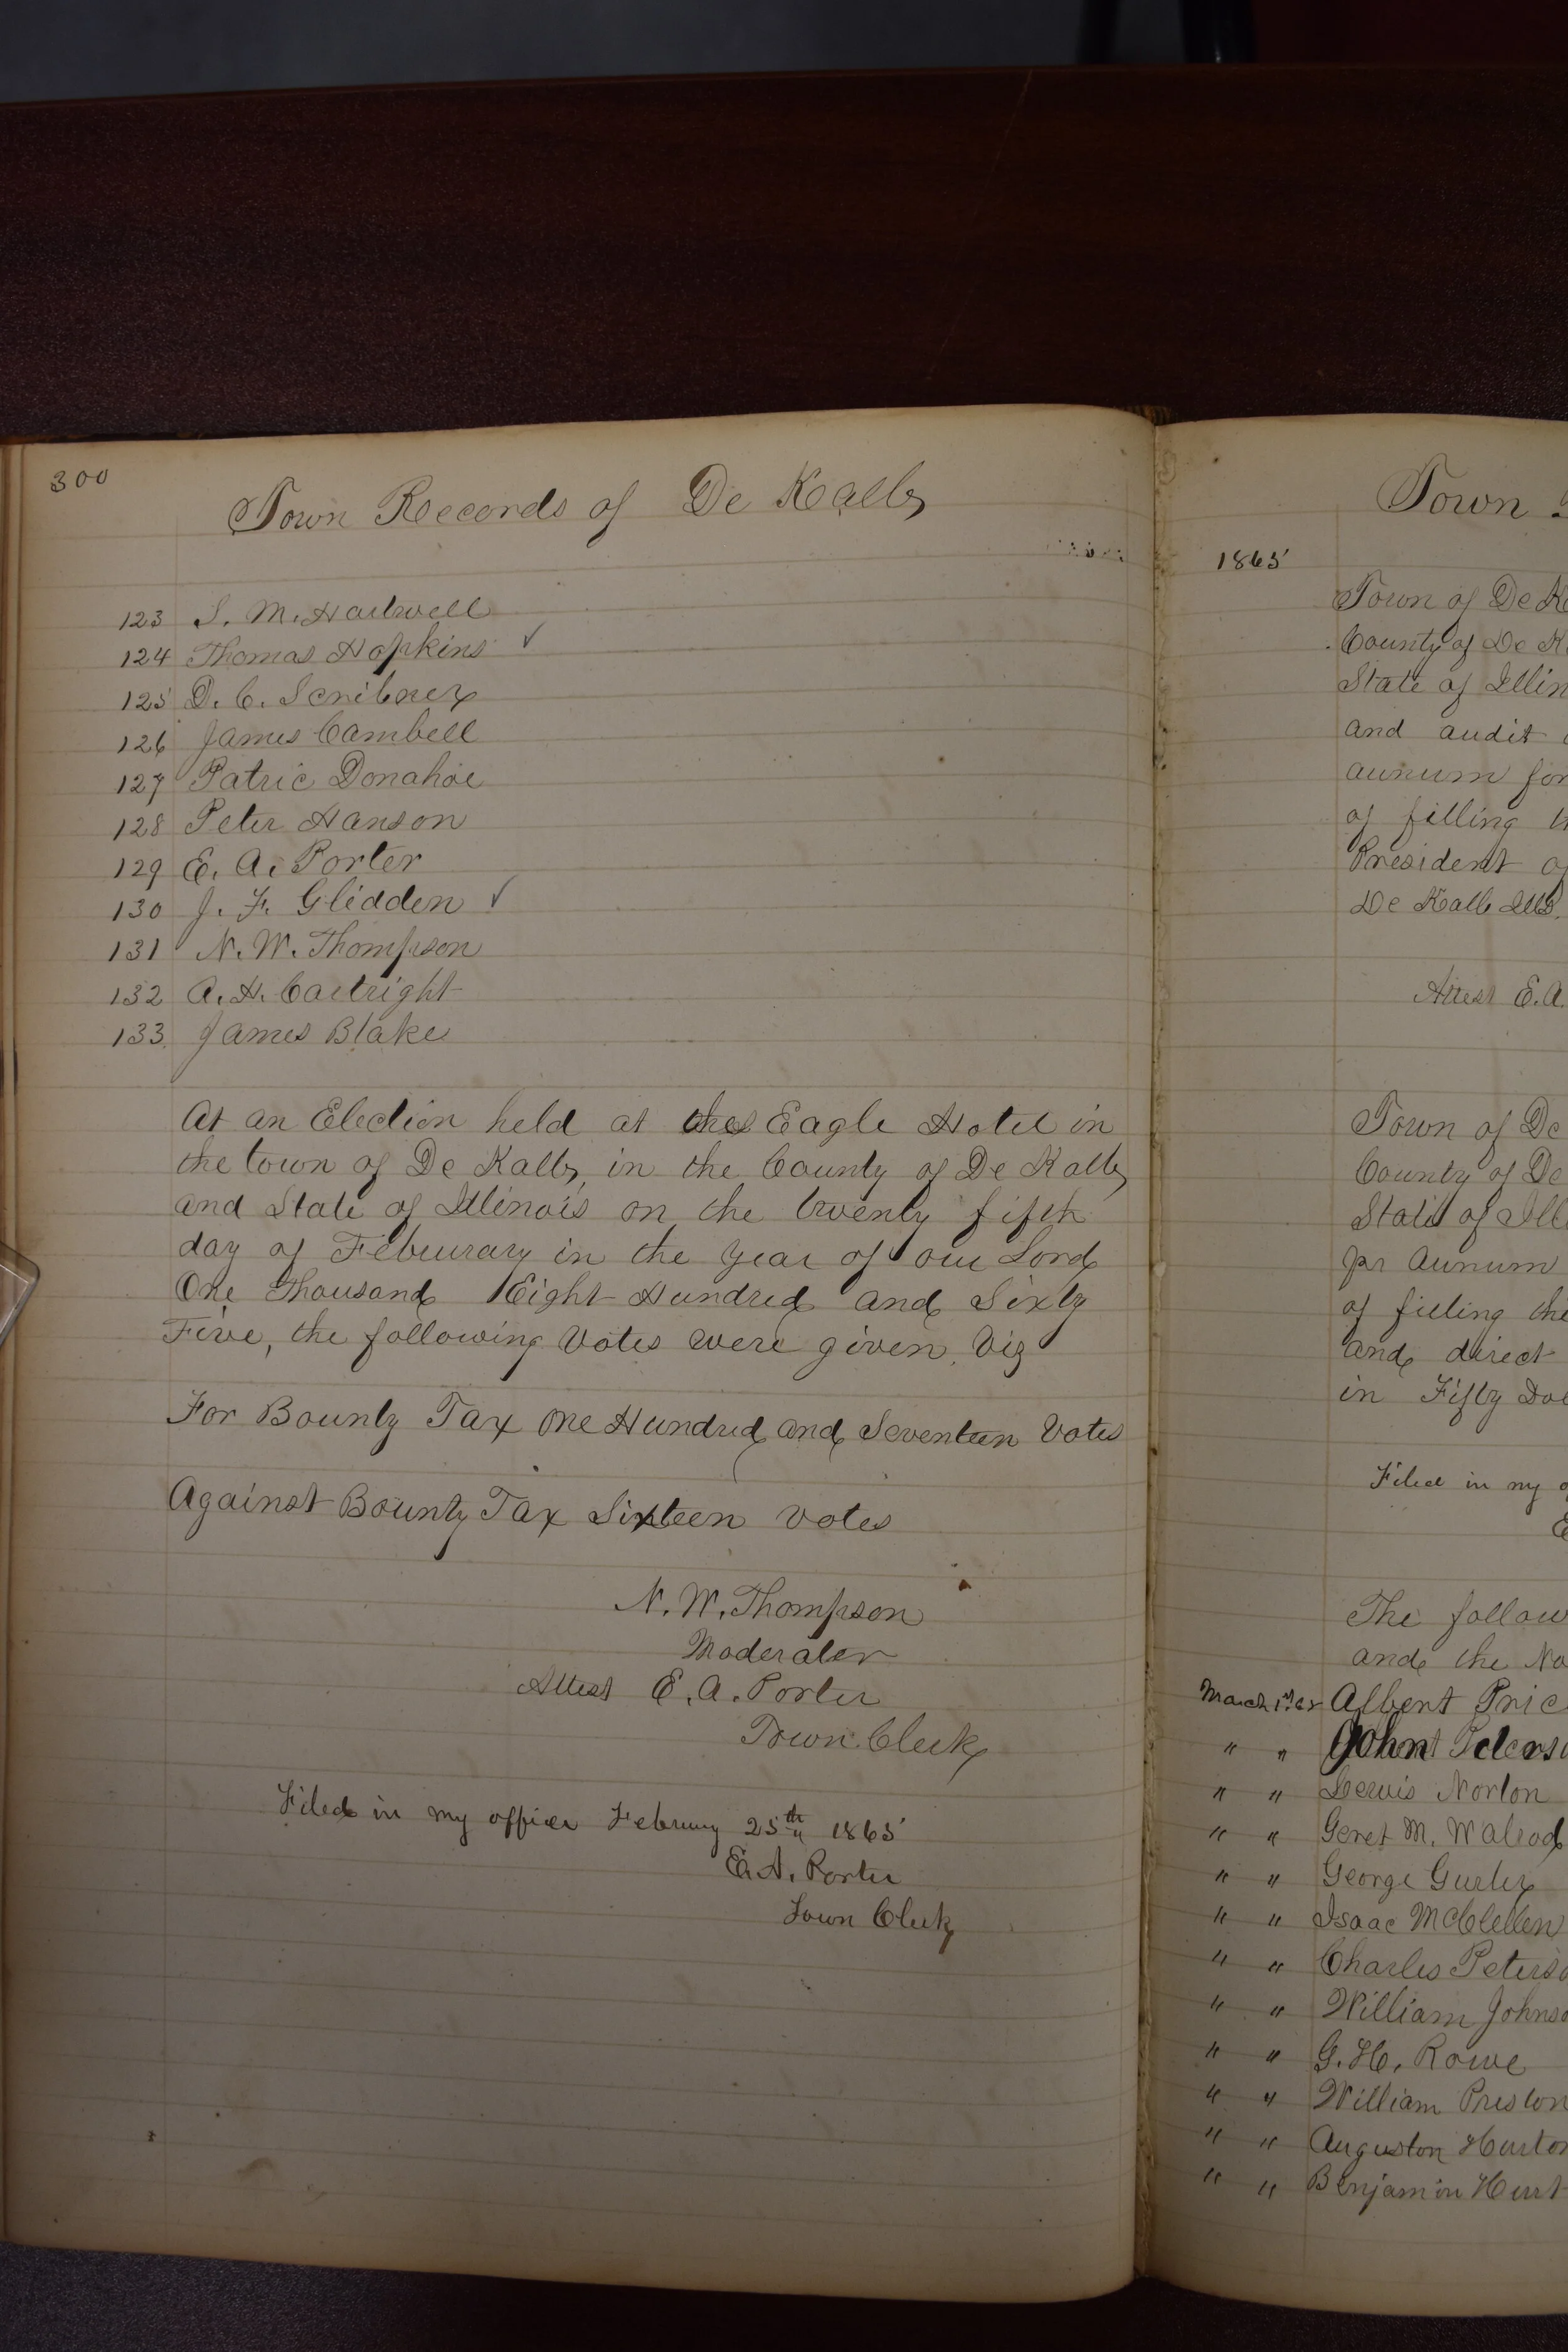 300
Town Records of De Kalb
123 S. M. Hartwell
124 Thomas Hopkins ✓
125 D. C. Scribner
126 James Cambell
127 Patric Donahoe
128 Peter Hanson
129 E. A. Porter
130 J. F. Glidden ✓
131 N. W. Thompson
132 A. H. Cartright
133. James Blake
At an Election held at the Eagle Hotel in
the town of De Kalb, in the County of De Kalb
and State of Illinois on the twenty fifth
day of Feburary in the year of our Lord
One Thousand Eight Hundred and Sixty
Five, the following Votes were given, Viz
For Bounty Tax One Hundred and Seventeen Votes
Against Bounty Tax Sixteen Votes
N. W. Thompson
Moderater
Attest E. A. Porter
Town Clerk
Filed in my office February 25th 1865
E. A. Porter
Town Clerk
Town
1865
Town of De K
County of De K
State of Illin
and audit
annum for
of filling th
President of
De Kalb Ills.
Attest E. A.
Town of De
County of De
State of Ill
pr annum
of filling the
and direct
in Fifty Dol
Filed in my o
E
The follow
and the No
March 1st 65 Albert Pric
" " John Peterso
" " Lewis Norton
" " Geret M. Walrod
" " George Gurley
" " Isaac McClellen
" " Charles Peterso
" " William Johnso
" " G. H. Rowe
" " William Preston
" " Auguston Hurton
" " Benjamin Hurt